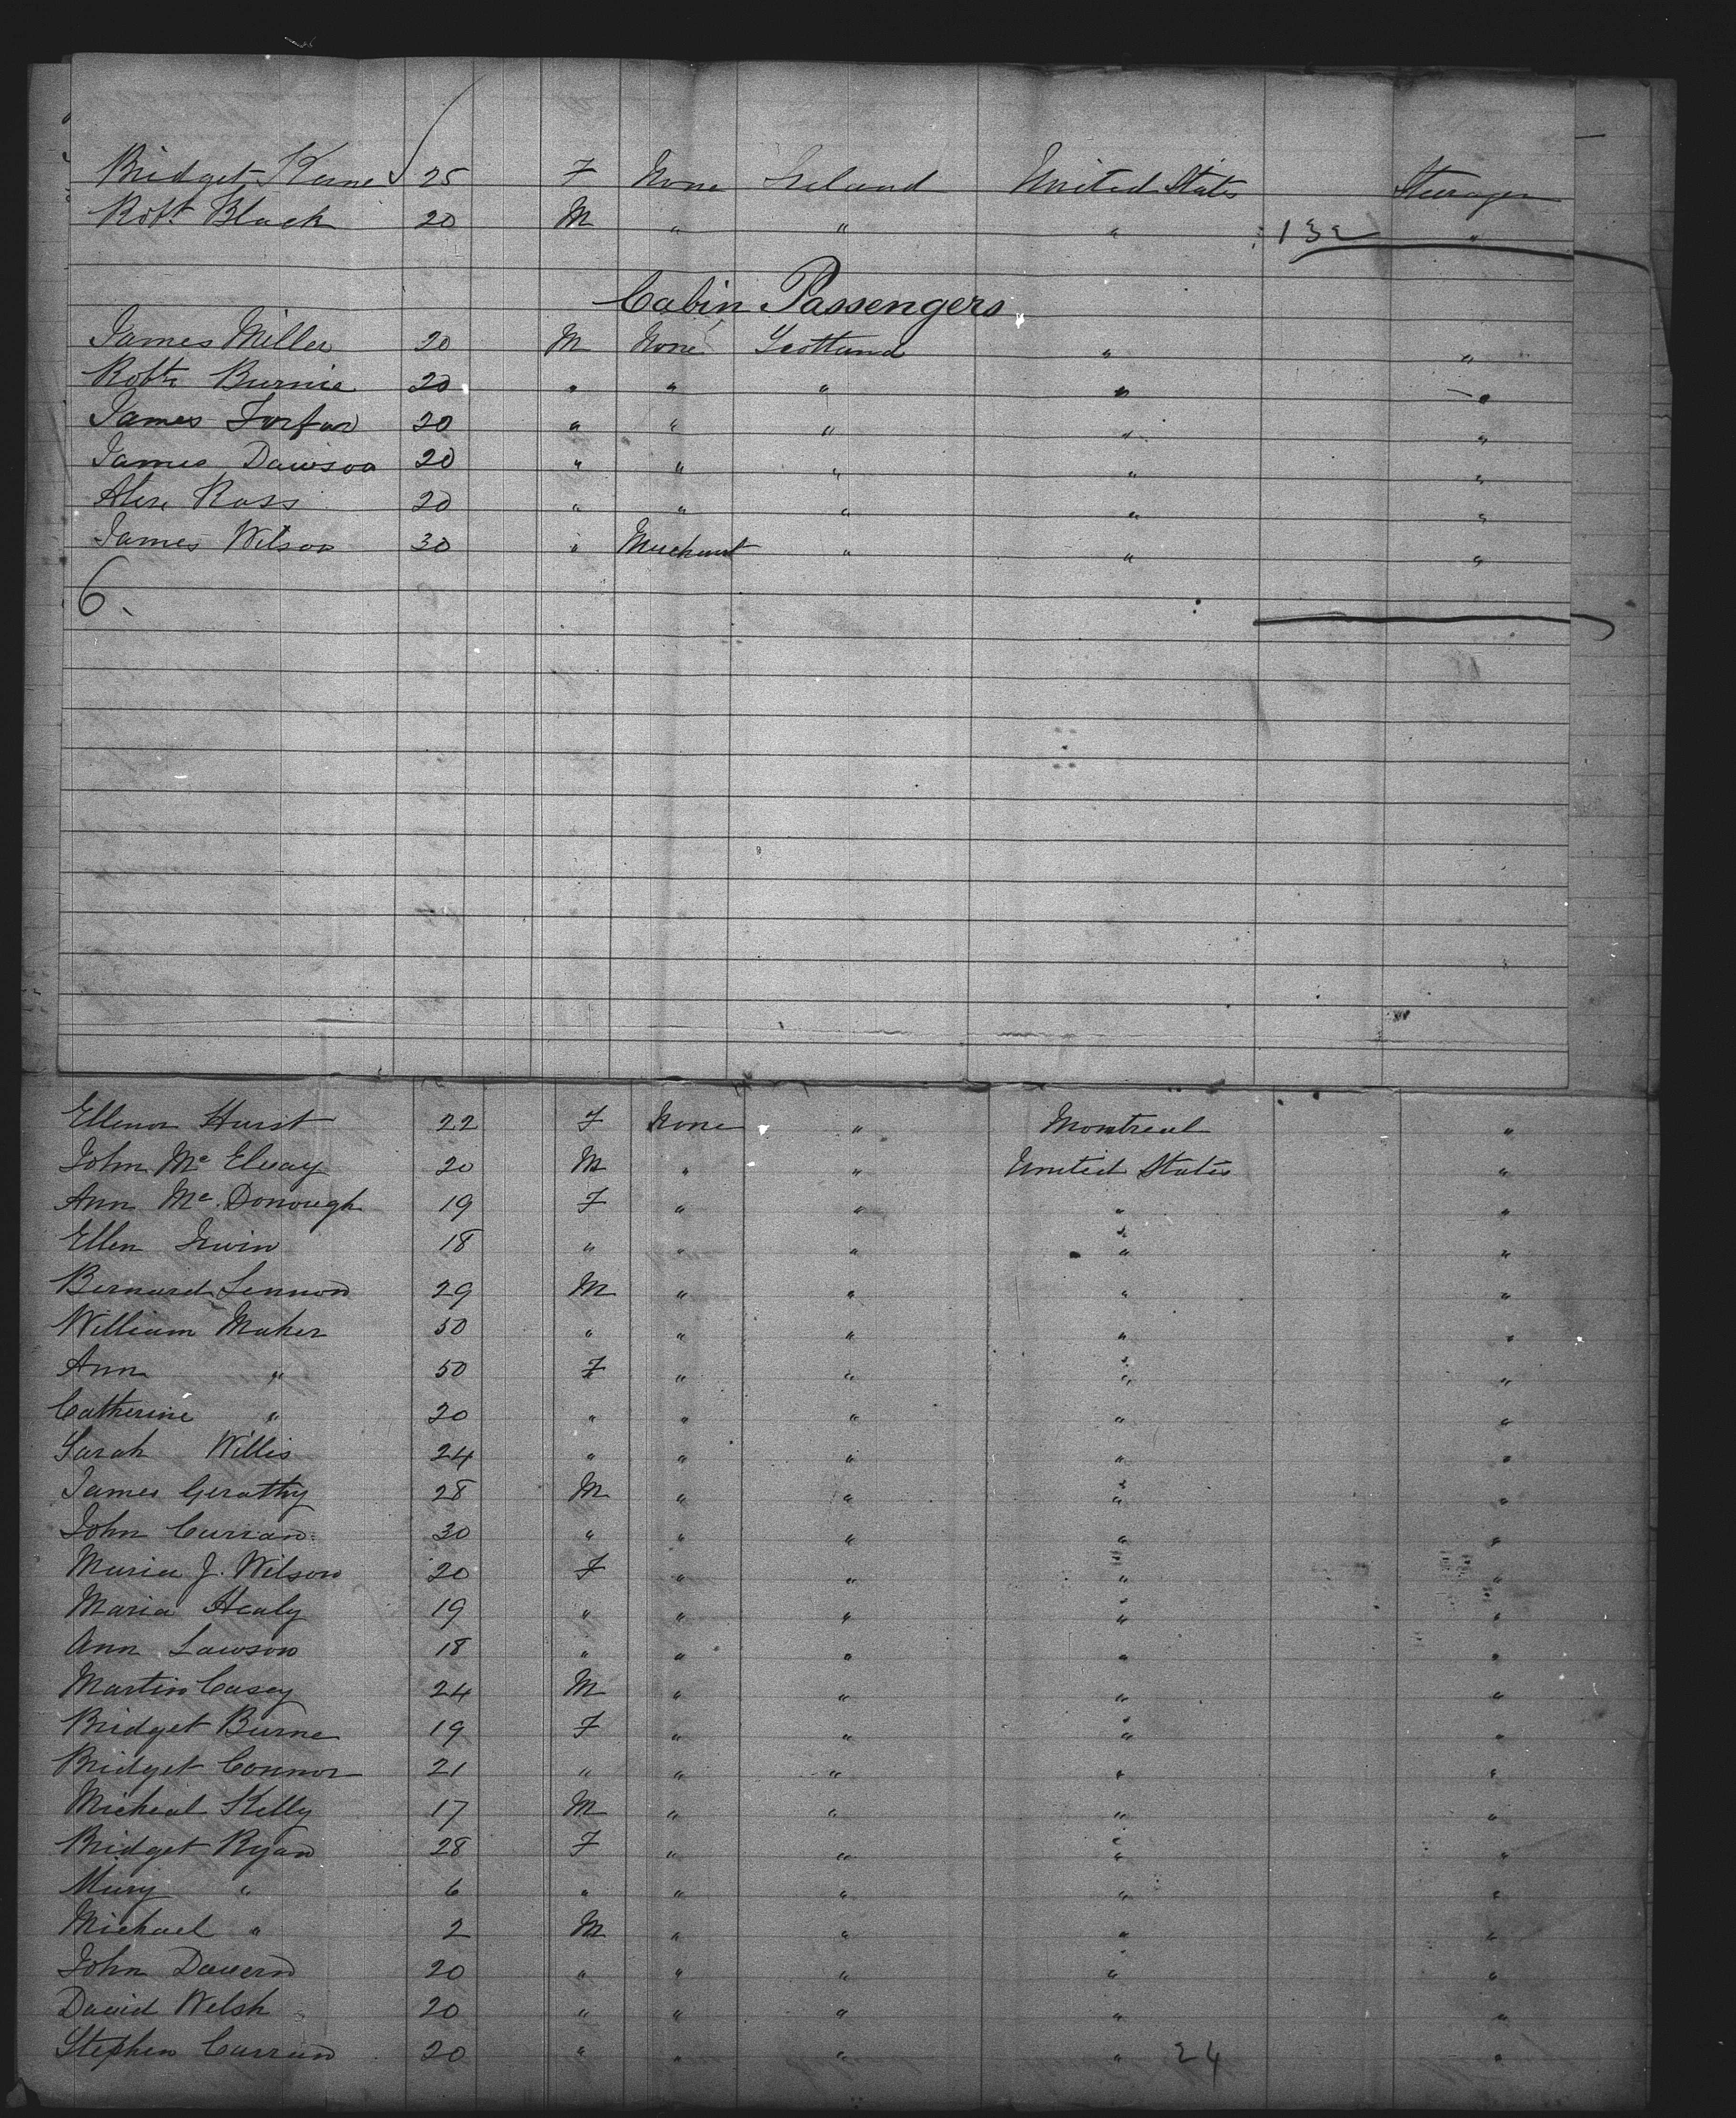 Bridget Kane 25 F None Ireland United States Steerage
Robt. Black 20 M " " " 132 "
Cabin Passengers
James Miller 20 M None Scotland " "
Robt. Burnie 20 " " " " "
James Forfar 20 " " " " "
James Dawson 20 " " " " "
Alex Ross 20 " " " " "
James Wilson 30 " Merchant " " "
6.
Ellenor Hurst 22 F None " Montreal "
John Mc Elvay 20 M " " United States "
Ann Mc Donough 19 F " " " "
Ellen Irwin 18 " " " " "
Bernard Lennon 29 M " " " "
William Maher 50 " " " " "
Ann " 50 F " " " "
Catherine " 20 " " " " "
Sarah Willis 24 " " " " "
James Gerathy 28 M " " " "
John Curran 30 " " " " "
Maria J. Wilson 20 F " " " "
Maria Healy 19 " " " " "
Ann Lawson 18 " " " " "
Martin Casey 24 M " " " "
Bridget Burne 19 F " " " "
Bridget Connor 21 " " " " "
Micheal Kelly 17 M " " " "
Bridget Ryan 28 F " " " "
Mary " 6 " " " " "
Michael " 2 M " " " "
John Davern 20 " " " " "
David Welsh 20 " " " " "
Stephen Curran 20 " " " " 24 "